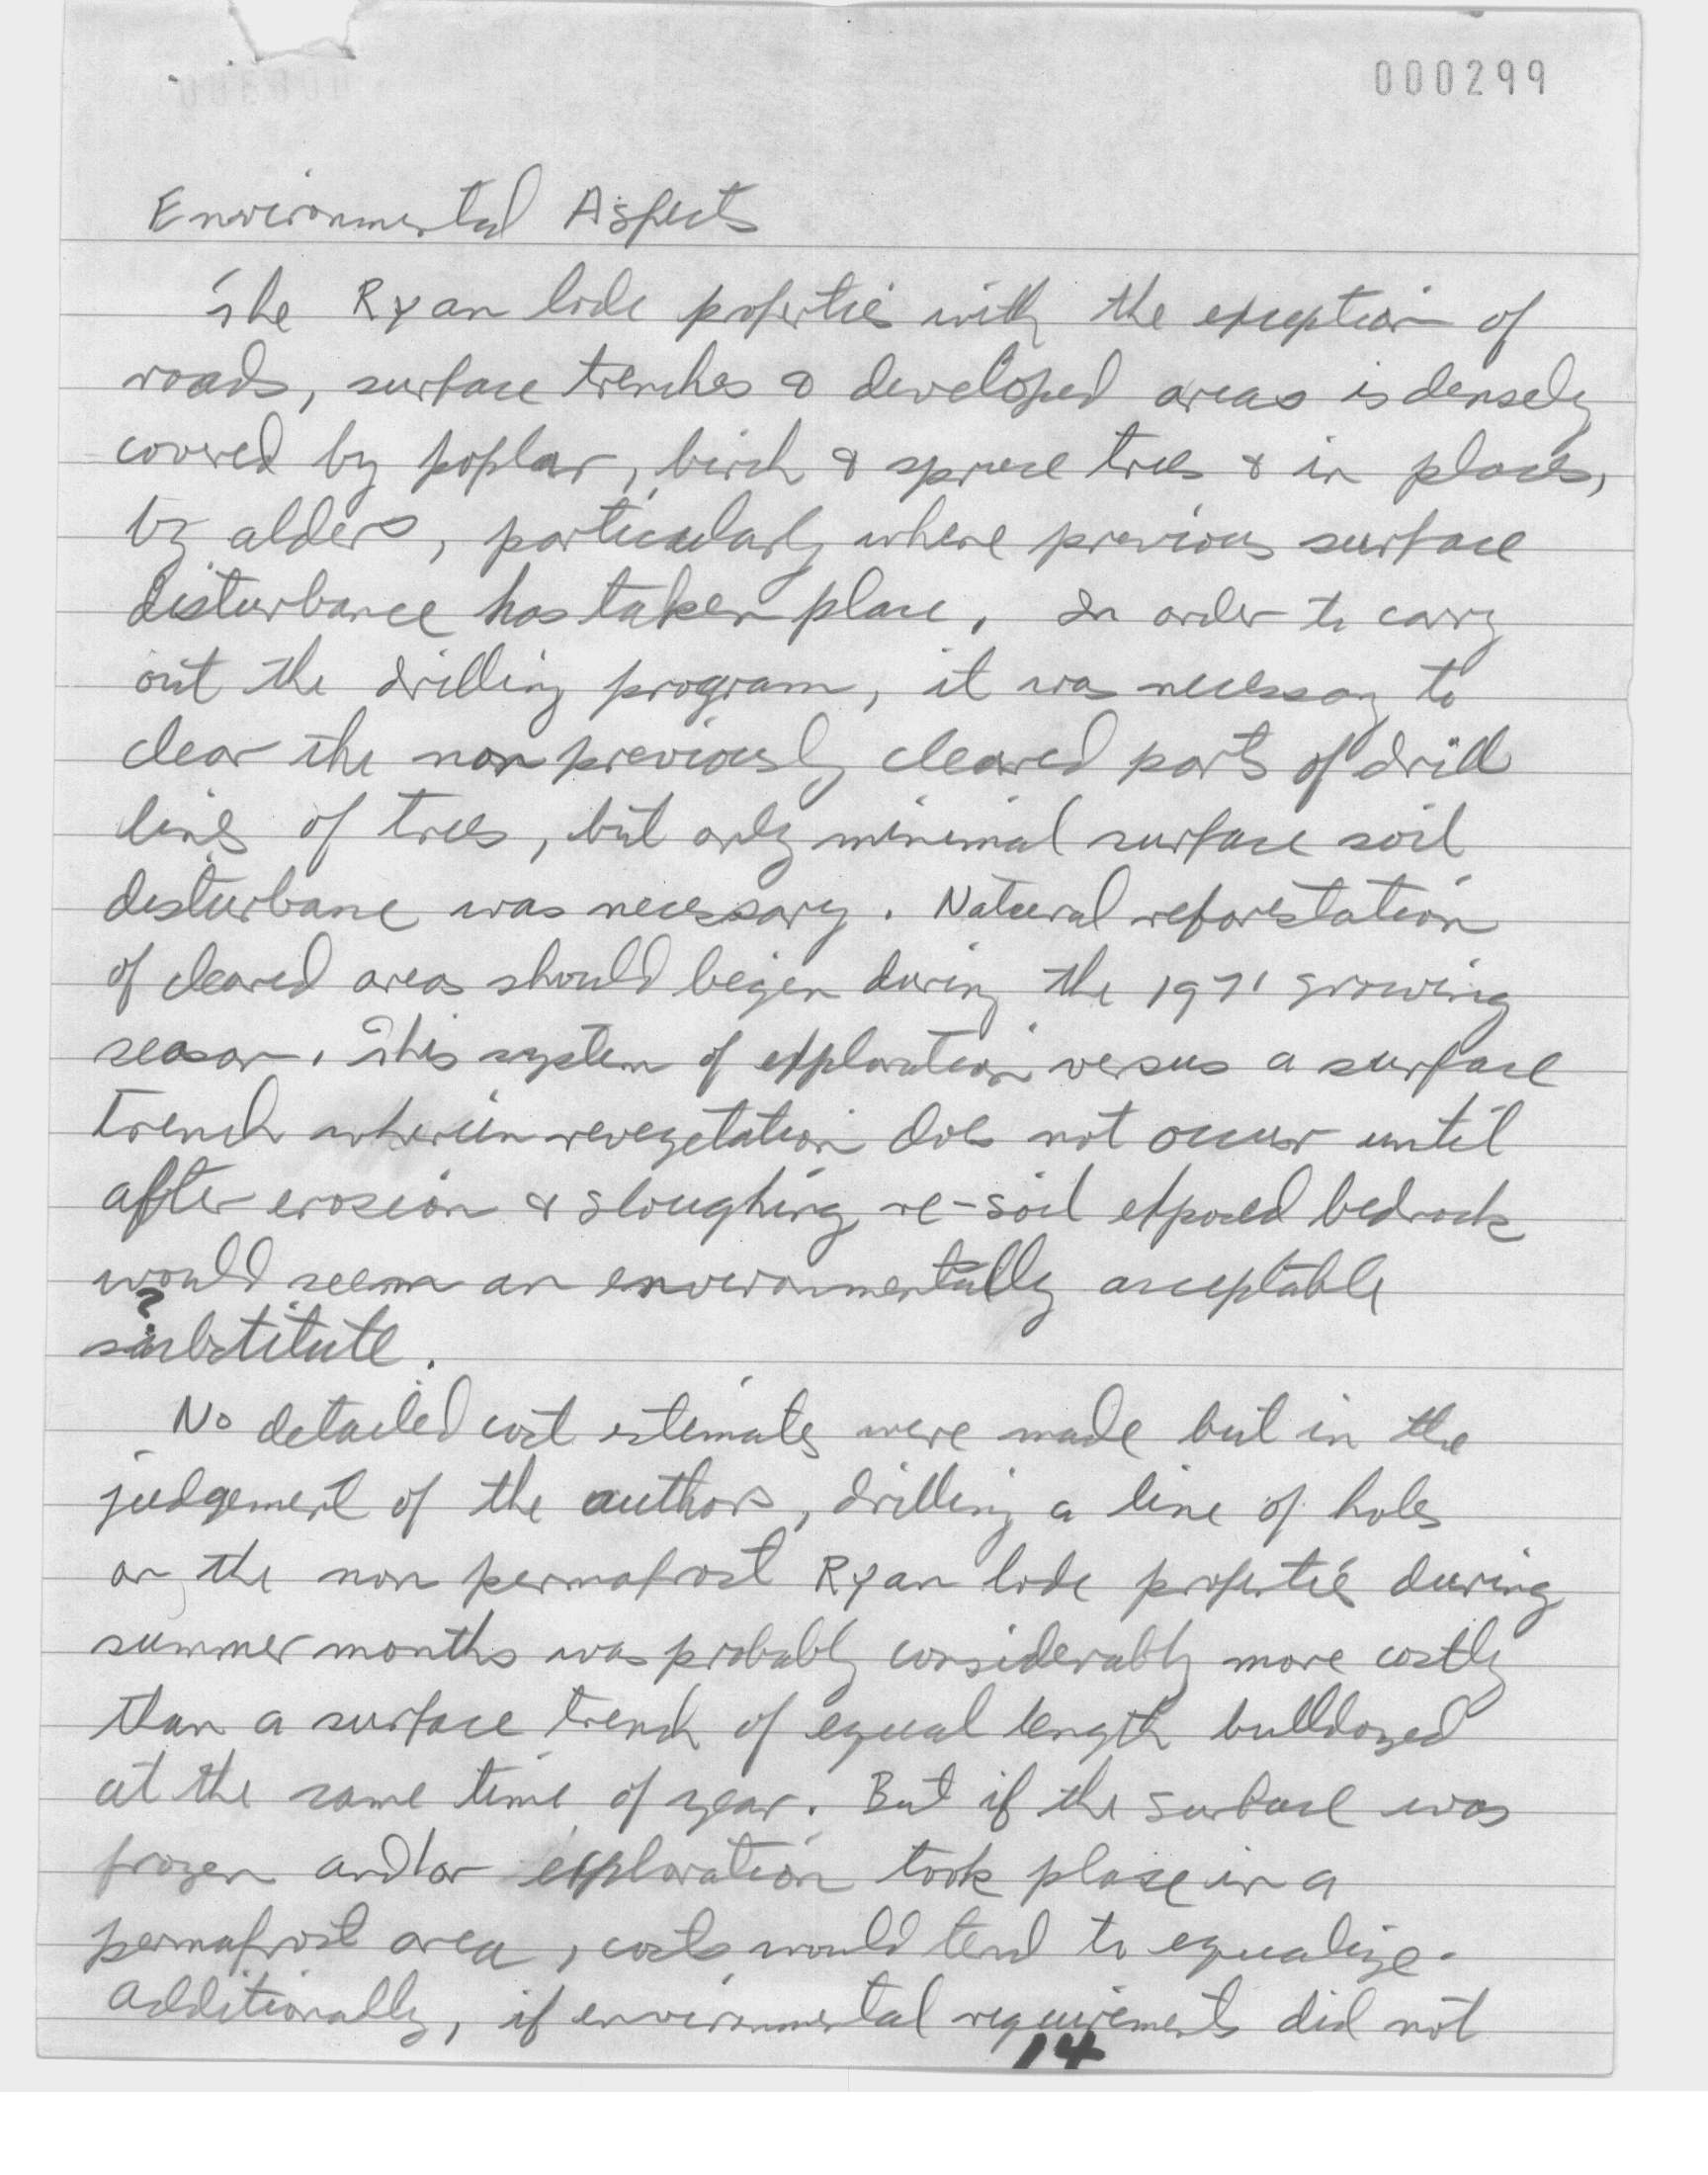 000299
Environmental Aspects
The Ryan lode properties with the exception of
roads, surface trenches & developed areas is densely
covered by poplar, birch & spruce trees & in places,
by alders, particularly where previous surface
disturbance has taken place. In order to carry
out the drilling program, it was necessary to
clear the non previously cleared parts of drill
lines of trees, but only minimal surface soil
disturbance was necessary. Natural reforestation
of cleared areas should begin during the 1971 growing
season. This system of exploration versus a surface
trench wherein revegetation does not occur until
after erosion & sloughing re-soil exposed bedrock
would seem an environmentally acceptable
?
substitute.
No detailed cost estimates were made but in the
judgement of the authors, drilling a line of holes
on the non permafrost Ryan lode properties during
summer months was probably considerably more costly
than a surface trench of equal length bulldozed
at the same time of year. But if the surface was
frozen and/or exploration took place in a
permafrost area, costs would tend to equalize.
Additionally, if environmental requirements did not
14